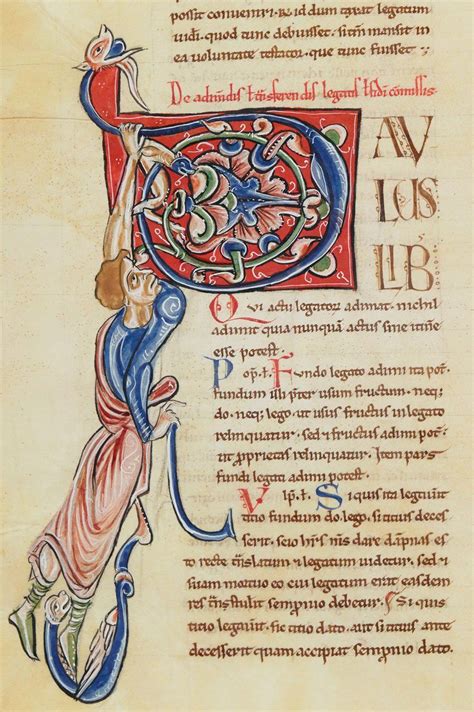 possit conveniri · id dum tarat legatum
uidi · quod tunc debuisset · si tam mansit in
ea uoluntate testator · que tunc fuisset ·
De adimdis t̄nsferendis legatis ł fidi comissis
PAV
LUS
LIB
Qui actū legatoꝝ adimat · nichil
adimit quia nunquā actus sine itine
esse potest.
Pop̄.ł. Fundo legato adimi ita pot̄.
fundum illi p̄ter usum fructum · neq;
do · neq; lego · ut usus fructus in legato
relinquatur · sed & fructus adimi pot̄.
ut proprietas relinquatur. Item pars
fundi legati adimi potest.
Vlp̄.ł. Si quis ita legauit
titio fundum do lego · si titius deces
serit · seio heres ms dare damnas es
to recte t̄nslatum & legatum uidetur · sed &
si iam mortuo eo cui legatum erit easdem
res t̄nstulit sempnio debetur. Si quis
titio legauit · sic titio dato · aut si titius ante
decesserit quam accipiat sempnio dato.